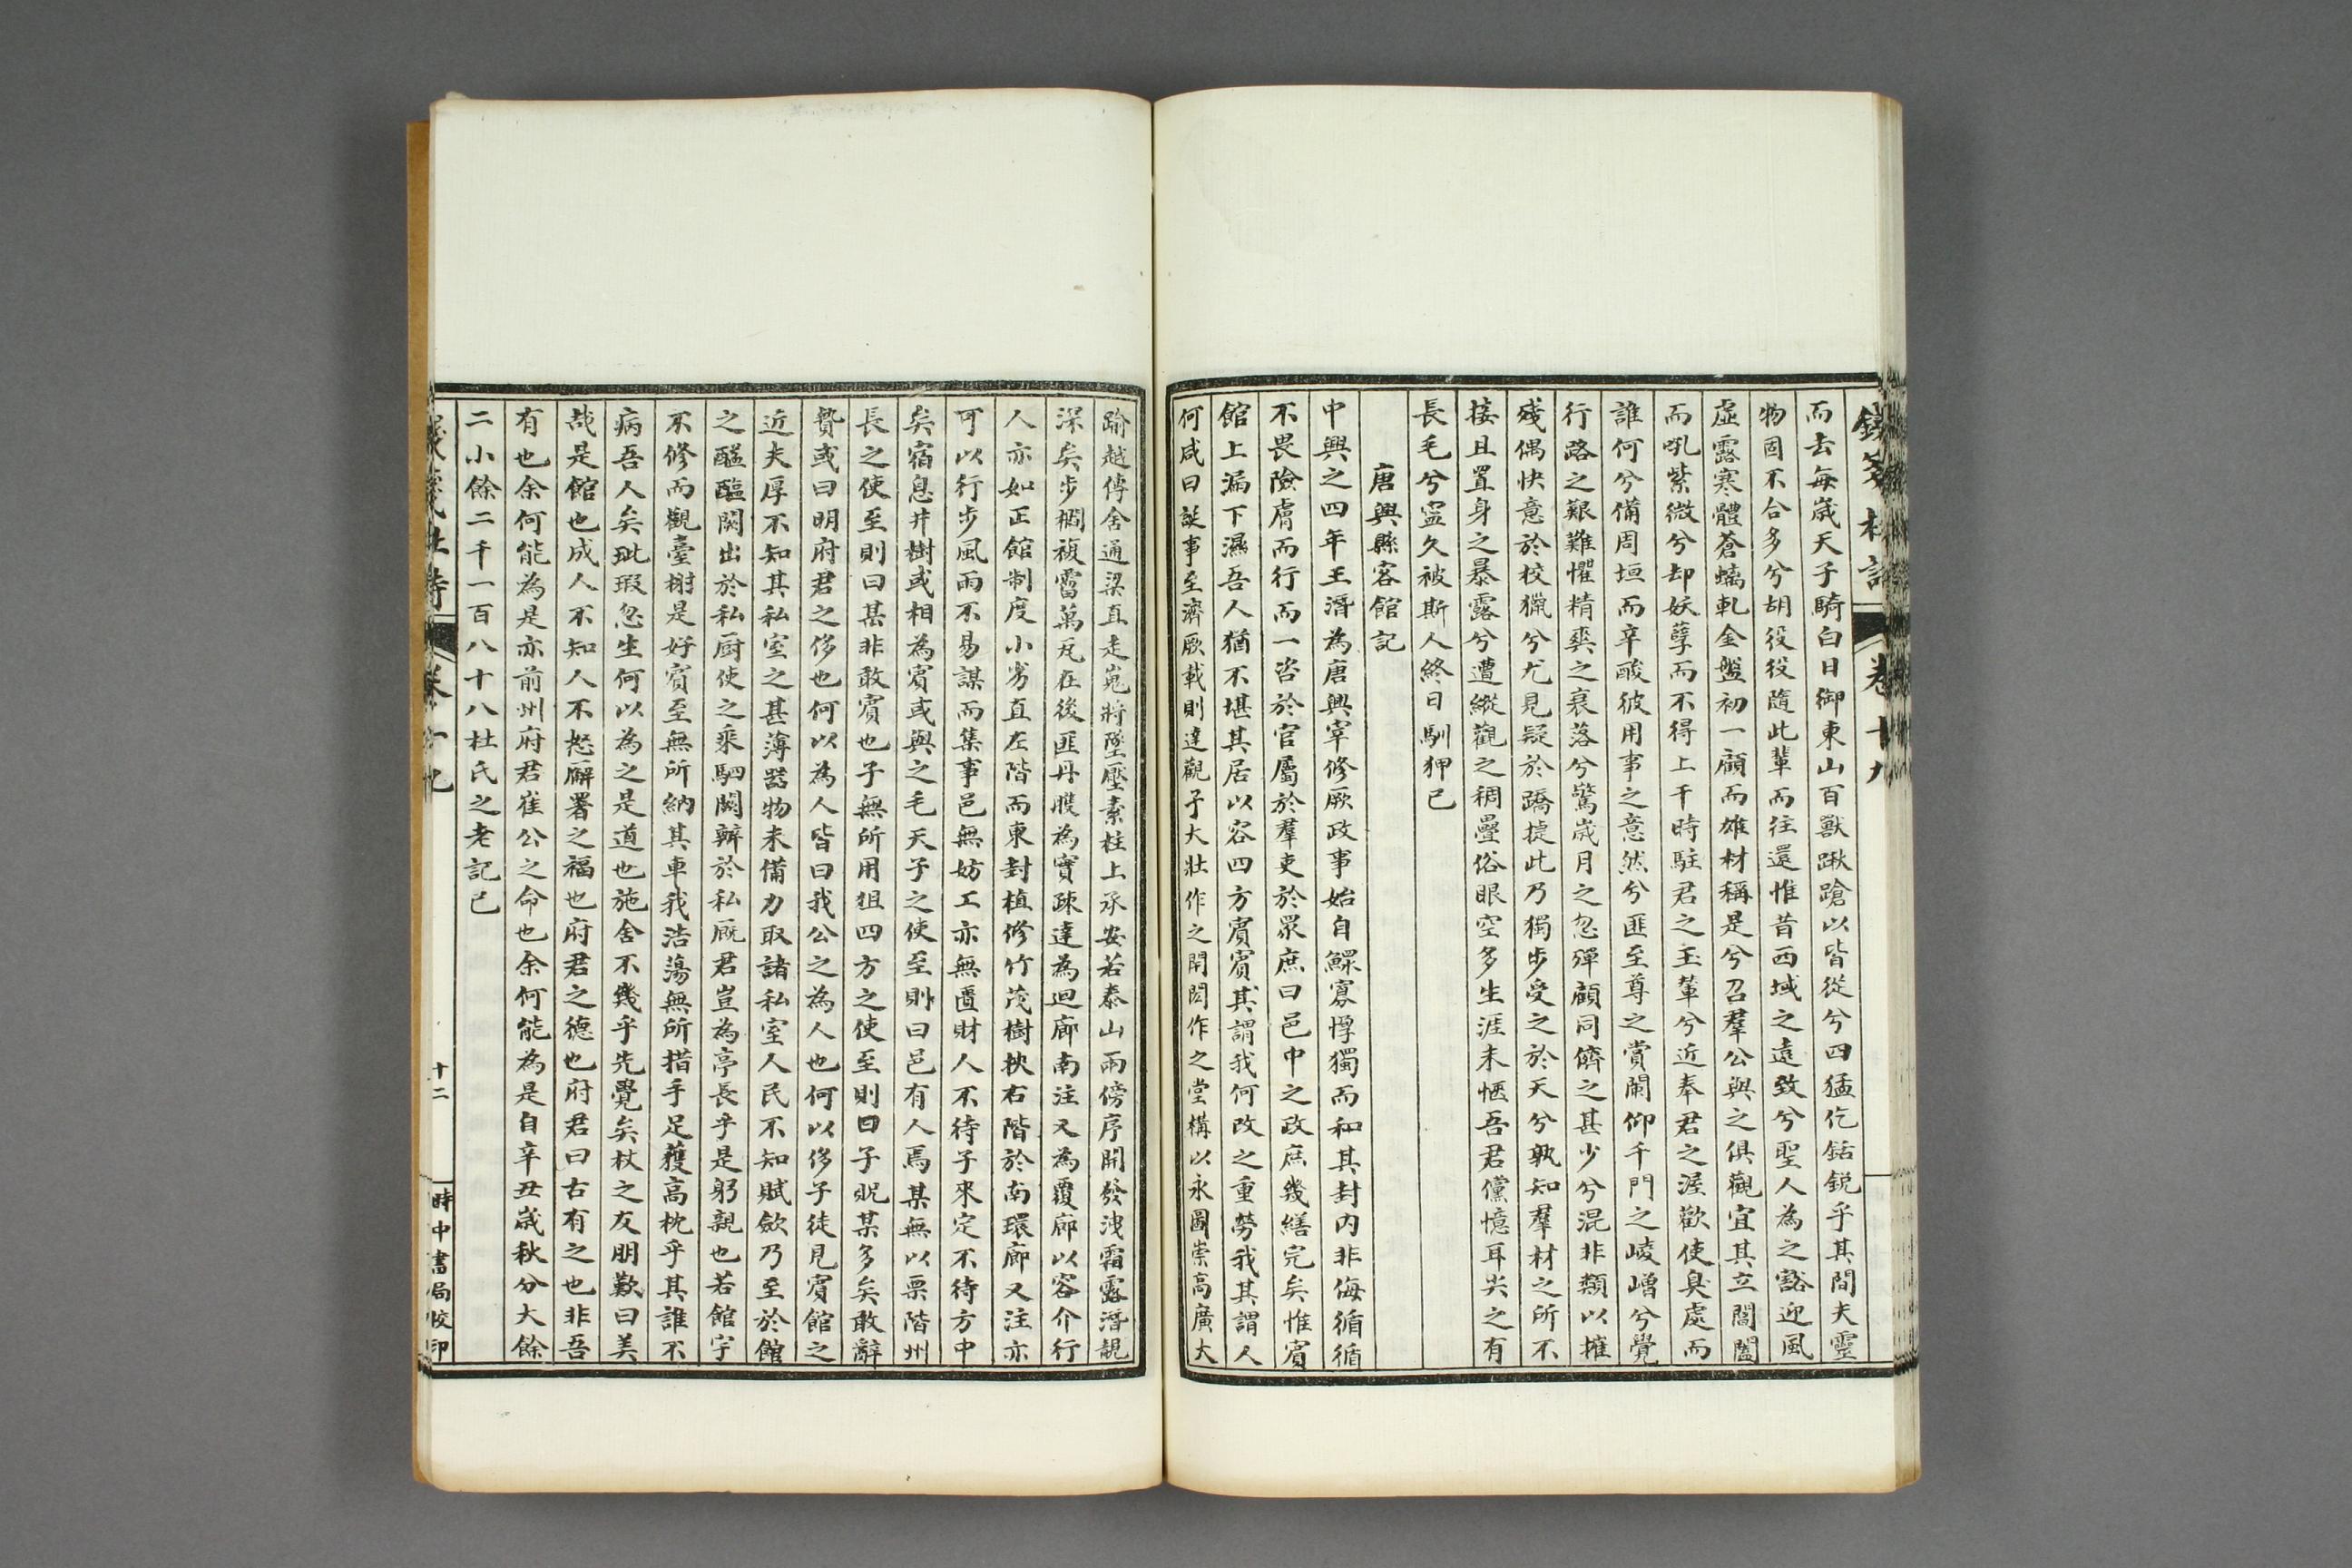 卷十九
而去每歲天子騎白日御東山百獸踿蹌以皆從兮四猛仡銛銳乎其間夫靈
物固不合多兮胡役役隨此輩而往還惟昔西域之遠致兮聖人為之豁迎風
虛露寒體蒼螭軋金盤初一顧而雄材稱是兮召羣公與之俱觀宜其立閶闔
而吼紫微兮却妖孽而不得上干時駐君之玉輦兮近奉君之渥歡使臭處而
誰何兮備周垣而辛酸彼用事之意然兮匪至尊之賞闌仰千門之崚嶒兮覺
行路之艱難懼精爽之衰落兮驚歲月之忽殫顧同儕之甚少兮混非類以摧
殘偶快意於校獵兮尤見疑於蹻捷此乃獨步受之於天兮孰知羣材之所不
接且置身之暴露兮遭縱觀之稠疊俗眼空多生涯未愜吾君儻憶耳尖之有
長毛兮寧久被斯人終日馴狎已
唐興縣客館記
中興之四年王潛為唐興宰修厥政事始自鰥寡惸獨而和其封內非侮循循
不畏險膚而行而一咨於官屬於羣吏於眾庶曰邑中之政庶幾繕完矣惟賓
館上漏下濕吾人猶不堪其居以容四方賓賓其謂我何改之重勞我其謂人
何咸曰誕事至濟厥載則達觀于大壯作之閈閎作之堂構以永圖崇高廣大
踰越傳舍通梁直走嵬將墜壓素柱上承安若泰山兩傍序開發洩霜露潛靚
深矣步櫩複霤萬瓦在後匪丹雘為實疎達為迴廊南注又為覆廊以容介行
人亦如正館制度小劣直左階而東封植修竹茂樹挾右階於南環廊又注亦
可以行步風雨不易謀而集事邑無妨工亦無匱財人不待子來定不待方中
矣宿息井樹或相為賓或與之毛天子之使至則曰邑有人焉某無以栗階州
長之使至則曰某非敢賓也子無所用俎四方之使至則曰子貺某多矣敢辭
贄或曰明府君之侈也何以為人皆曰我公之為人也何以侈子徒見賓館之
近夫厚不知其私室之甚薄器物未備力取諸私室人民不知賦斂乃至於館
之醯醢闕出於私厨使之乘駟闕辦於私廐君豈為亭長乎是躬親也若館宇
不修而觀臺榭是好賓至無所納其車我浩蕩無所措手足獲高枕乎其誰不
病吾人矣玼瑕忽生何以為之是道也施舍不幾乎先覺矣杖之友朋歎曰美
哉是館也成人不知人不怒廨署之福也府君之德也府君曰古有之也非吾
有也余何能為是亦前州府君崔公之命也余何能為是自辛丑歲秋分大餘
二小餘二千一百八十八杜氏之老記已
十二
時中書局校印